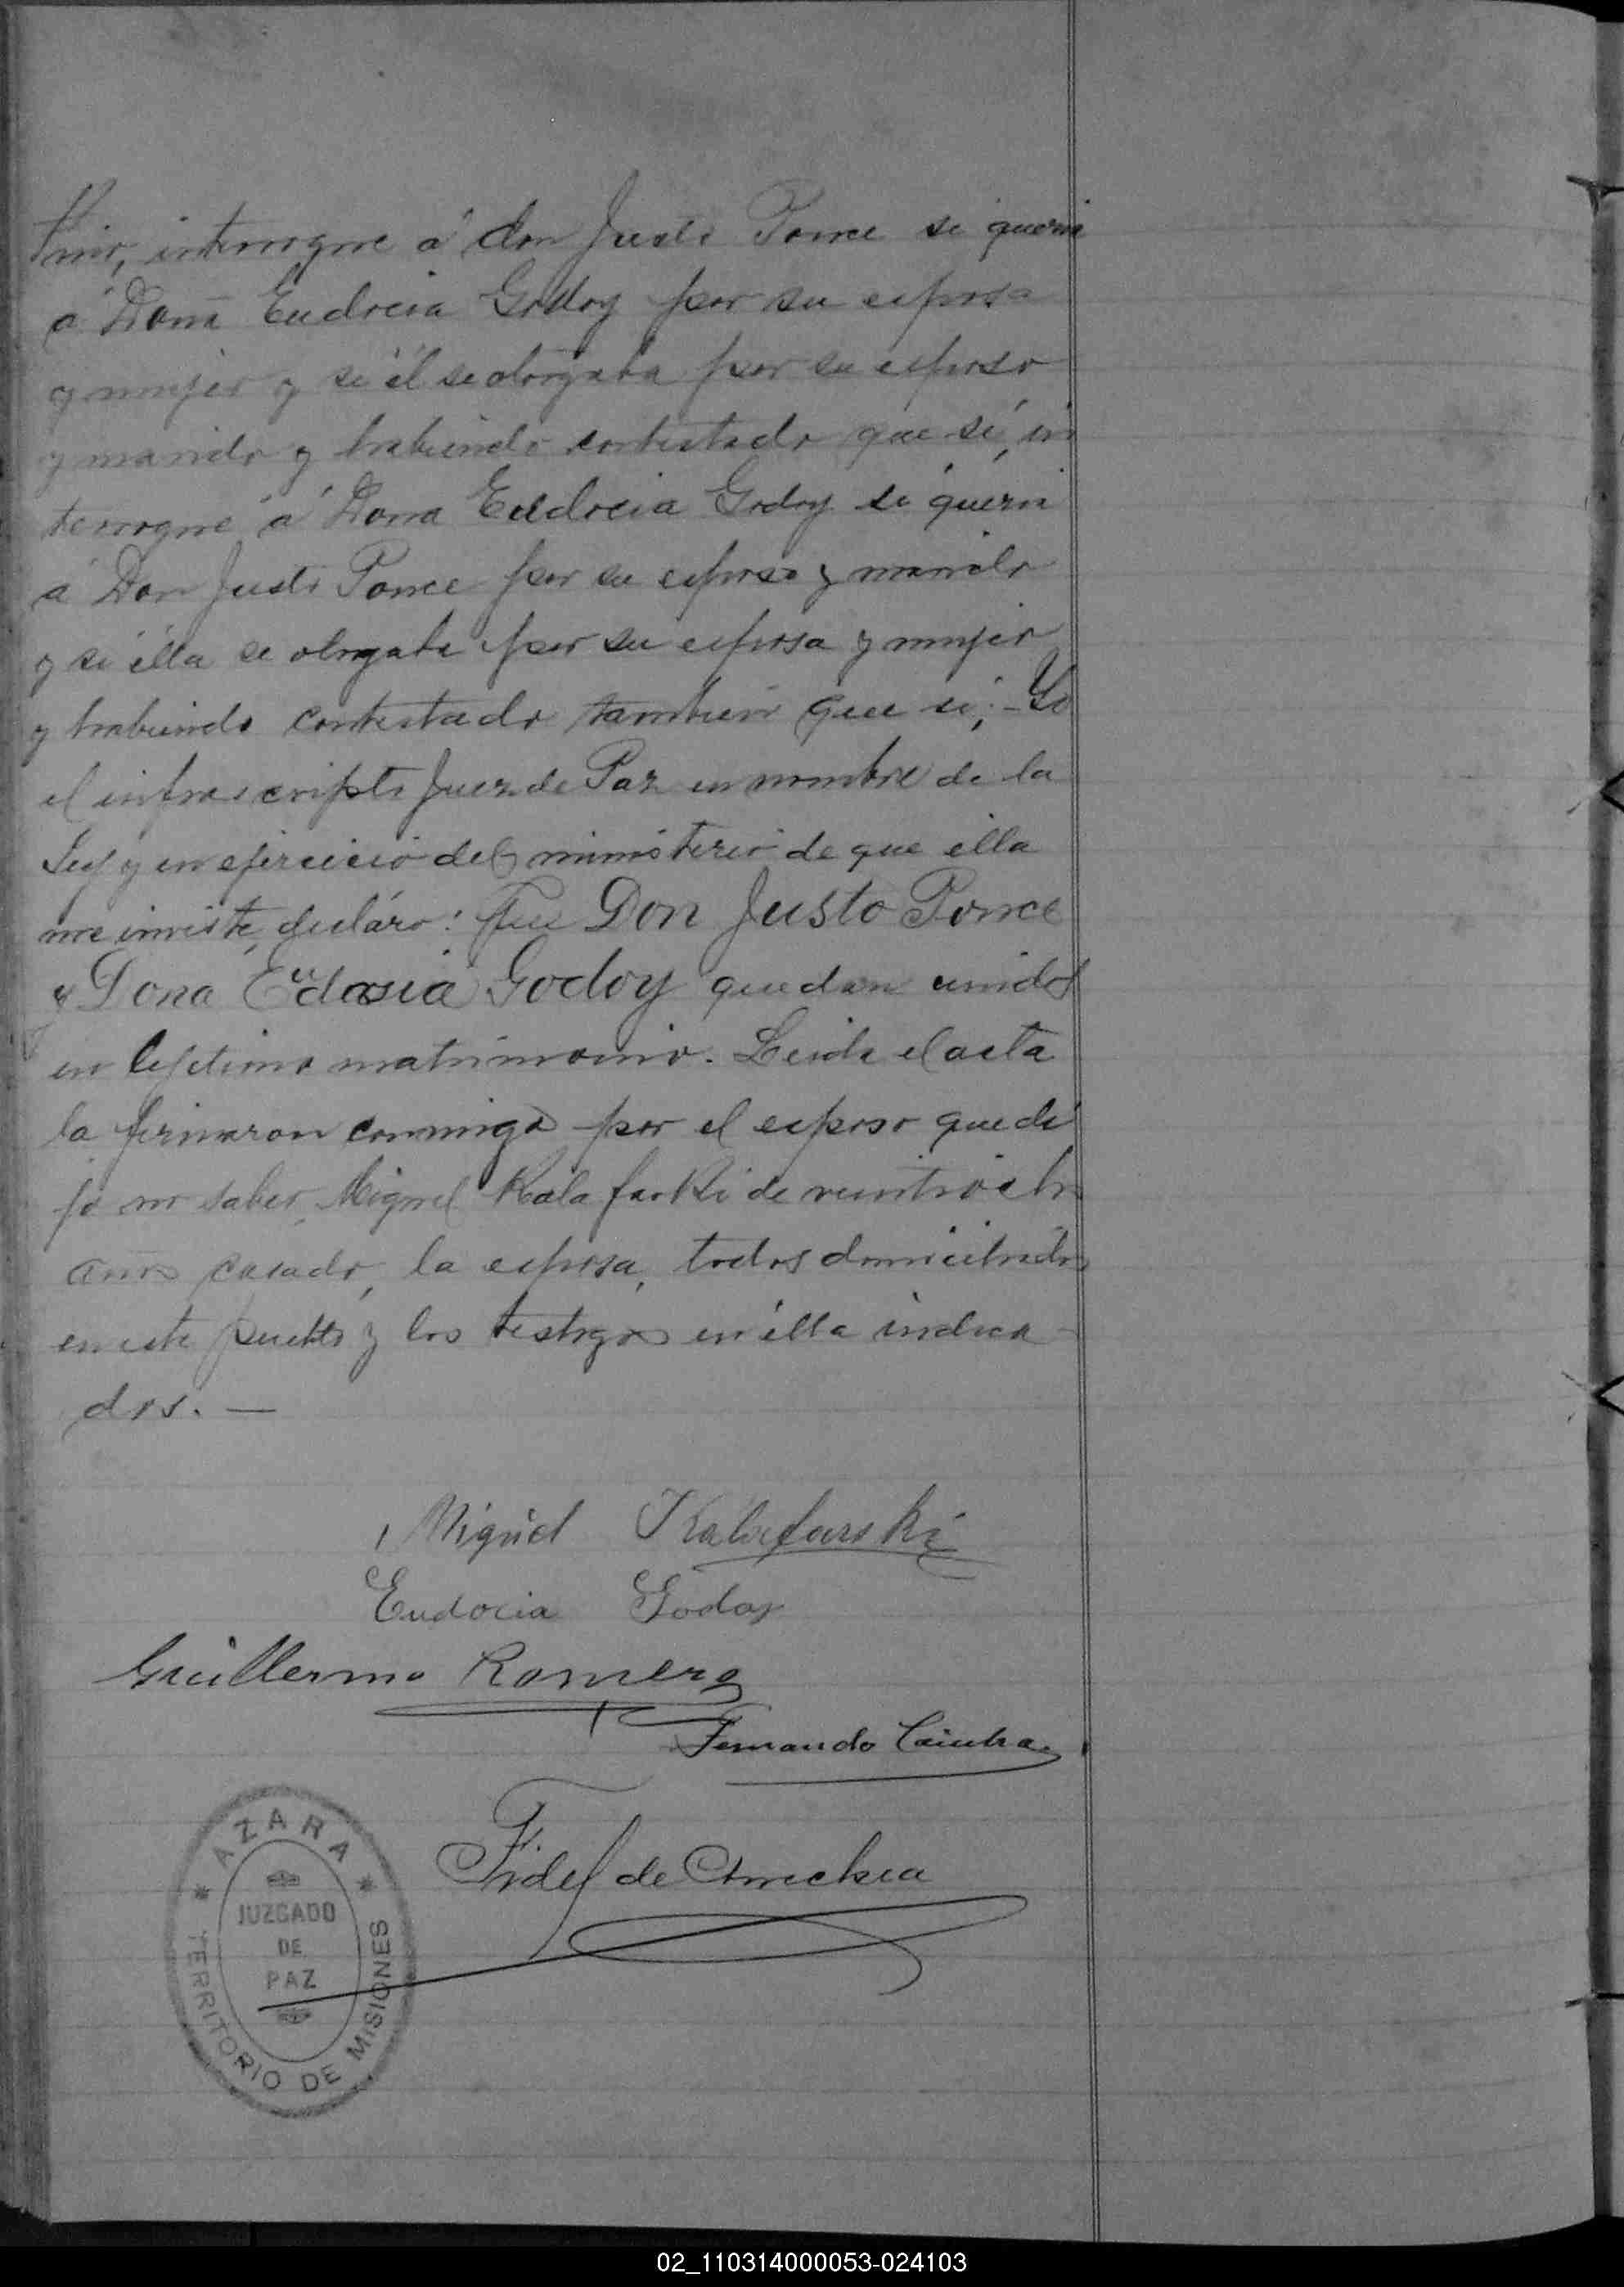 interrogue a don Justo Ponce si queria
a Dona Eudocia Godoy por su esposa
y mujer y si él se otorgaba por su esposo
y marido y habiendo contestado que sí, in
terrogué á Dona Eudocia Godoy si queria
á Don Justo Ponce por su esposo y marido
y si élla se otorgaba por su esposa y mujer
y habiendo contestado tambien que sí; - Yo
el infrascripto Juez de Paz en nombre de la
Ley y en ejercicio del ministerio de que élla
me inviste, decláro: Que Don Justo Ponce
y Dona Eudosia Godoy quedan unidos
en lejitimo matrimonio. Leida el acta
la firmaron conmigo por el esposo que di
jo no saber, Miguel Kalafarski de veintiocho
años casado, la esposa, todos domiciliados
en este pueblo y los testigos en élla indica
dos. —
Miguel Kalafarski
Eudocia Godoy
Guillermo Romero
Fernando
Fidel de
* AZARA *
JUZGADO
DE
PAZ
TERRITORIO DE MISIONES
02_110314000053-024103